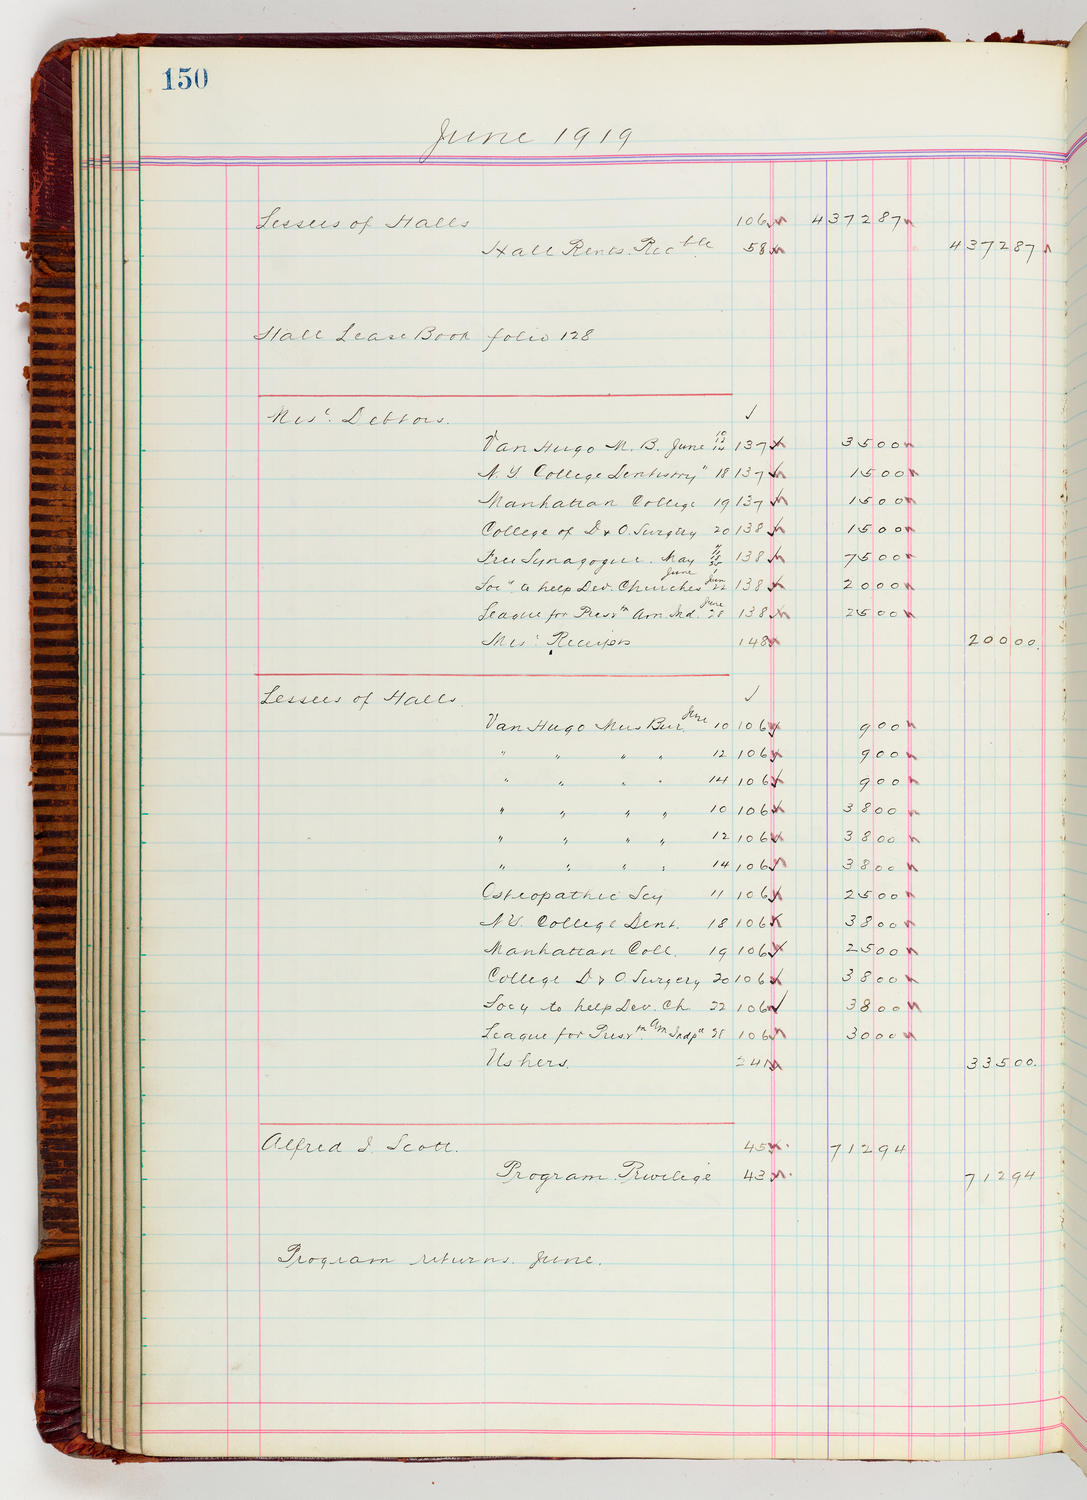 150
June 1919
Lessees of Halls 106 437287
Hall Rents Rec ble 58 437287
Hall Lease Book folio 128
Mis'. Debtors. ✓
Van Hugo M. B. June 10 12 14 137 3500
N.Y. College Dentistry " 18 137 1500
Manhattan College 19 137 1500
College of D & O. Surgery 20 138 1500
Free Synagogue. May 138 7500
Soc'y to help Dev. Churches June 22 138 2000
League for Presv tn Am. Ind. June 28 138 2500
Mis' Receipts 148 20000.
Lessees of Halls. ✓
Van Hugo Mus Bur. June 10 106 900
" " " " 12 106 900
" " " " 14 106 900
" " " " 10 106 3800
" " " " 12 106 3800
" " " " 14 106 3800
Osteopathic Scy 11 106 2500
N.Y. College Dent. 18 106 3800
Manhattan Coll. 19 106 2500
College D & O Surgery 20 106 3800
Socy to help Dev. Ch. 22 106 3800
League for Presv tn Am Indp 28 106 3000
Ushers. 241 33500.
Alfred I. Scott. 45 71294
Program Privilege 43 71294
Program returns. June.